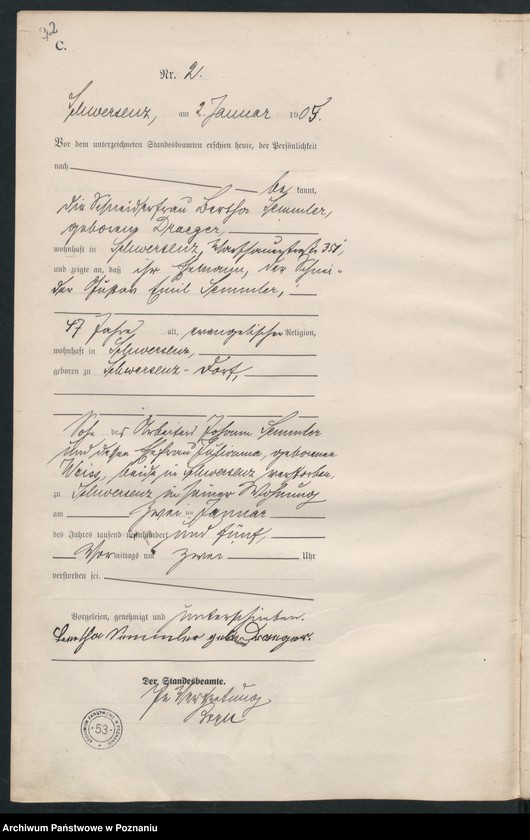 2
C.
Nr. 2.
Schwersenz, am 2. Januar 1905.
Vor dem unterzeichneten Standesbeamten erschien heute, der Persönlichkeit
nach be kannt,
die Schneiderfrau Bertha Semmler,
geborene Draeger,
wohnhaft in Schwersenz, Warschauerstraße 351,
und zeigte an, daß ihr Ehemann, der Schnei-
der Gustav Emil Semmler,
47 Jahre alt, evangelischer Religion,
wohnhaft in Schwersenz,
geboren zu Schwersenz-Dorf,
Sohn des Arbeiters Johann Semmler
und dessen Ehefrau Julianna, geborenen
Weiss, beide in Schwersenz verstorben,
zu Schwersenz in seiner Wohnung
am zwei ten Januar
des Jahres tausend neunhundert und fünf,
Vor mittags um zwei Uhr
verstorben sei.
Vorgelesen, genehmigt und unterschrieben.
Bertha Semmler geb Draeger.
Der Standesbeamte.
In Vertretung
ARCHIWUM PAŃSTWOWE W POZNANIU
53
Archiwum Państwowe w Poznaniu